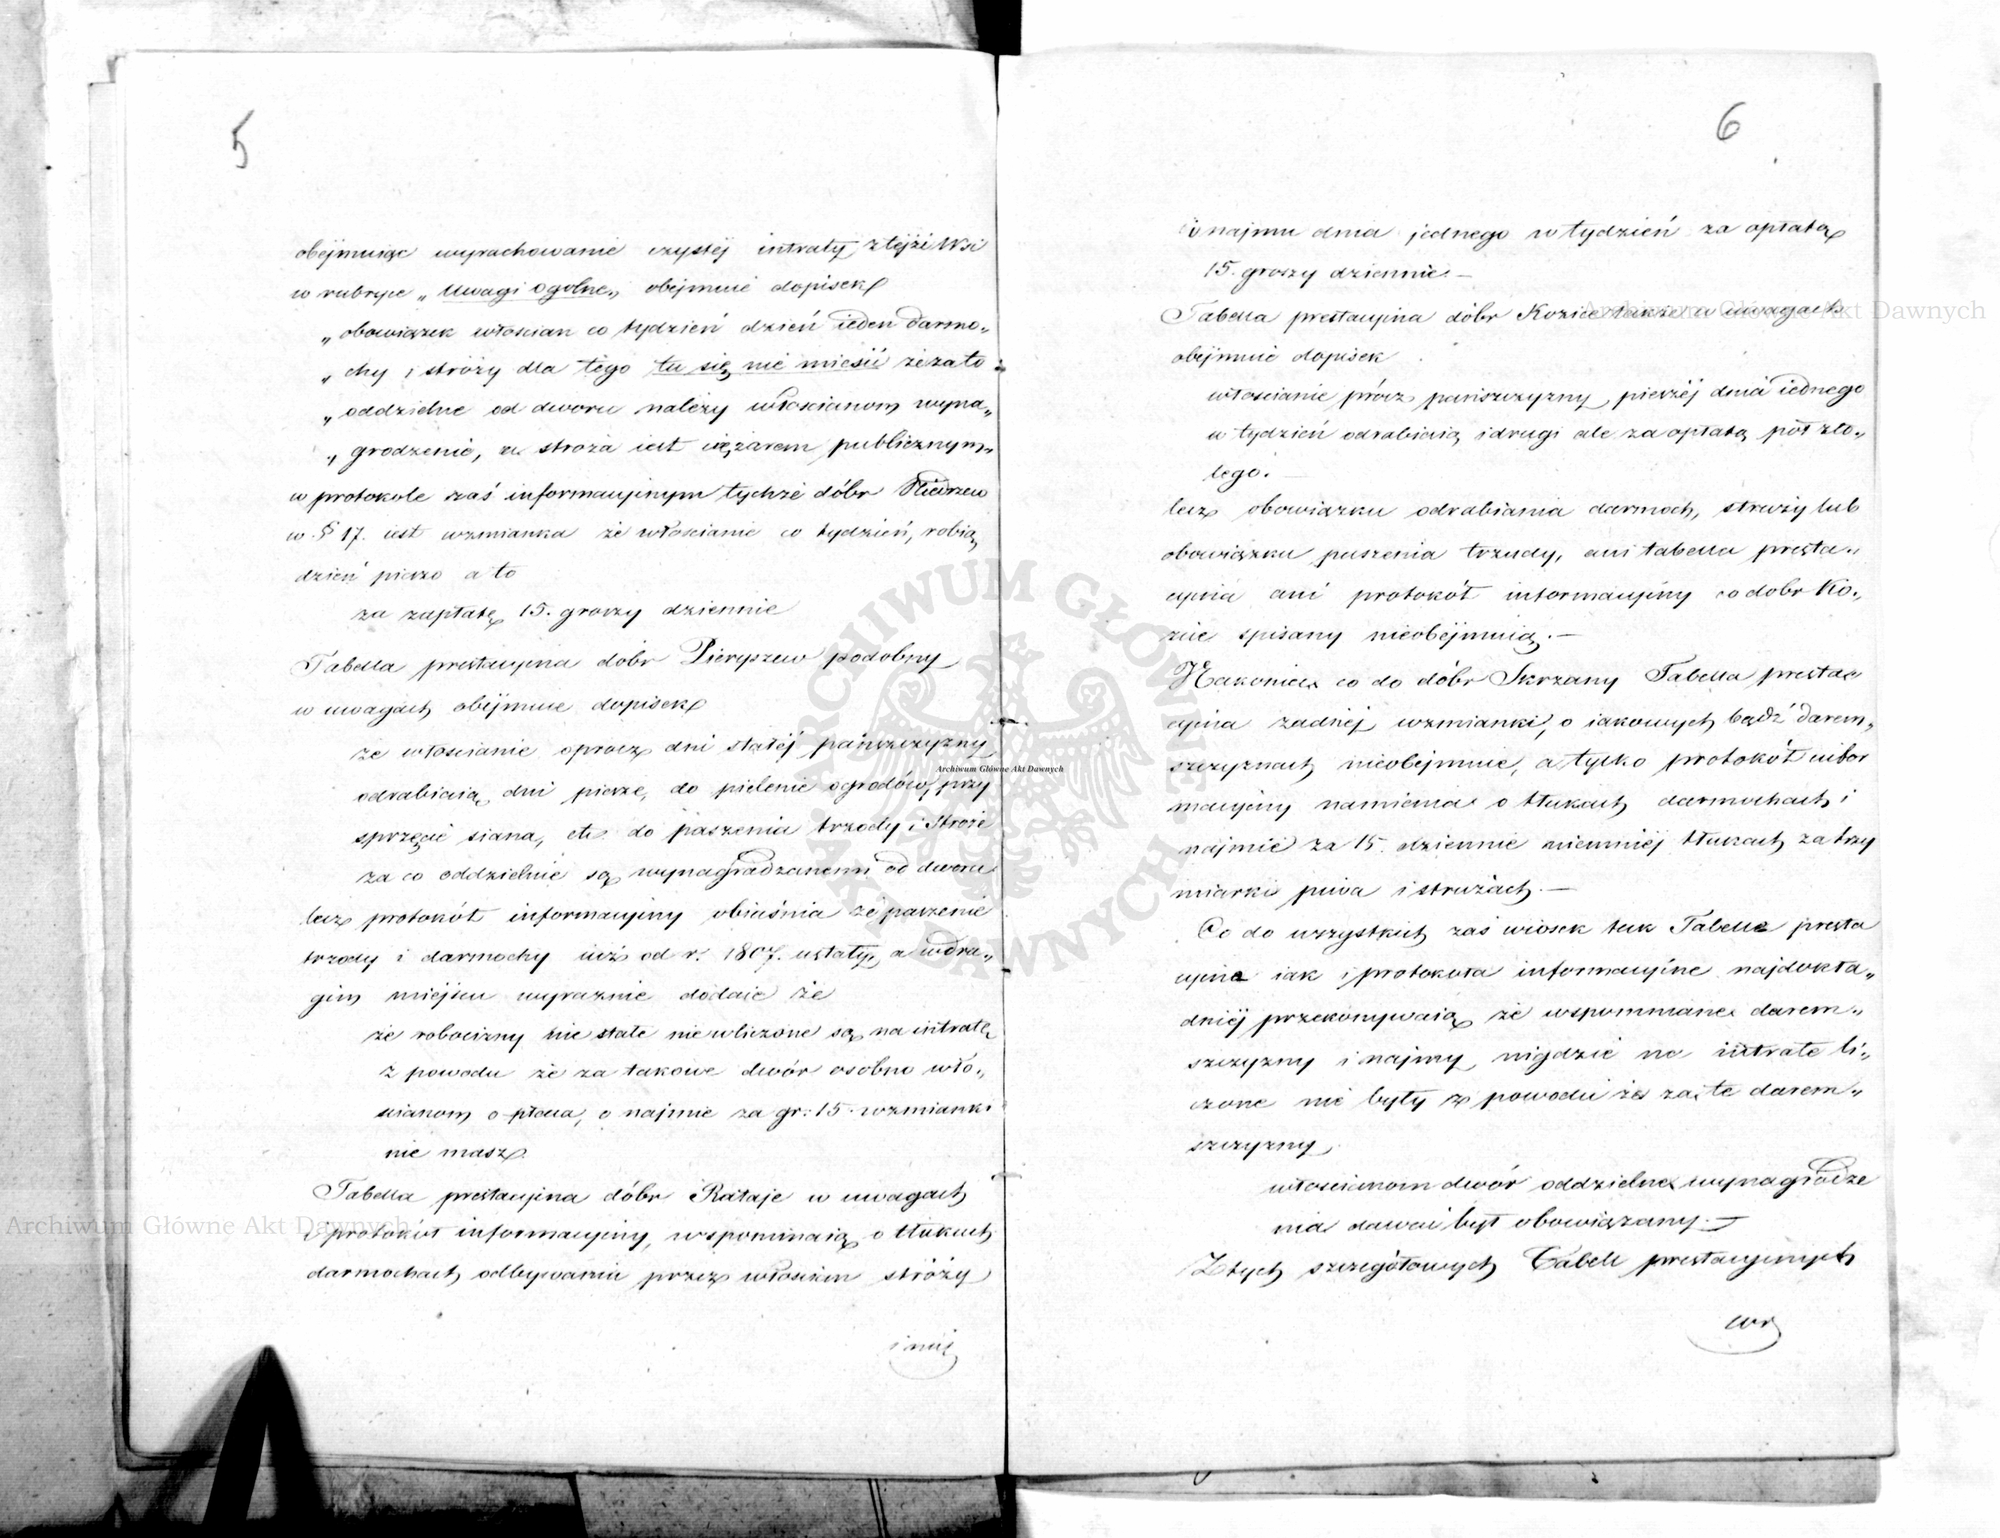 5
obéjmuiąc wyrachowanie czystéj intraty z téjże Wsi
w rubryce „Uwagi ogolne„ obejmuie dopisek
„obowiązek włościan co tydzień dzień ieden darmo„
„chy i stróży dla tego tu się nie mieści że za to
„oddzielne od dworu należy włościanom wyna„
„grodzenie, a stroża iest ciężarem publicznym„
w protokole zaś informacyinym tychże dóbr Niedrzew
w § 17. iest wzmianka że włościanie co tydzień, robią
dzień pieszo a to
za zapłatę 15. groszy dziennie
Tabella prestacyina dóbr Pieryszew podobny
w uwagach obejmuie dopisek
że włościanie oprocz dni stałéj pańszczyzny
odrabiaią dni piesze, do pielenie ogrodów, przy
sprzęcie siana, etc. do paszenia trzody i stróże
za co oddzielnie są wynagradzanemi od dworu
lecz protokół informacyiny obiaśnia że paszenie
trzody i darmochy iuż od r. 1807. ustały, a w dru„
gim miejscu wyraznie dodaie że
że robocizny nie stałe nie wliczone są na intratę
z powodu że za takowe dwór osobno wło„
scianom opłaca, o najmie za gr: 15. wzmianki
nie masz.
Tabella prestacyina dóbr Rataje w uwagach
i protokół informacyiny, wspominaią o tłukach
darmochach, odbywania przez włościan stróży
i naj
6
i najmu dnia jednego w tydzień za opłatą
15. groszy dziennie. —
Tabella prestacyina dóbr Kozice także w uwagach
obejmuie dopisek
włościanie prócz pańszczyzny pieszéj dnia iednego
w tydzień odrabiaią i drugi ale za opłatą pół zło„
tego. —
lecz obowiązku odrabiania darmoch, stróży lub
obowiązku paszenia trzody, ani tabella presta„
cyina ani protokół informacyiny co do dobr Ko„
zice spisany nieobéjmuią. —
Nakoniec co do dóbr Skrzany Tabella presta
cyina żadnéj wzmianki, o iakowych bądź darem„
szczyznach nieobéjmuie, a tylko protokół infor
macyiny namienia o tłukach darmochach i
najmie za 15. dziennie niemniéj tłukach za trzy
miarki piwa i stróżach. —
Co do wszystkich zaś wiosek tak Tabelle presta
cyine iak i protokóła informacyine najdokła„
dniéj przekonywaią że wspomniane darem„
szczyzny i najmy nigdzie na intratę li„
czone nie były z powodu że za te darem„
szczyzny
włościanom dwór oddzielne wynagrodze
nia dawać był obowiązany. —
Z tych szczegółowych Tabell prestacyinych
Archiwum Główne Akt Dawnych
Archiwum Główne Akt Dawnych
Archiwum Główne Akt Dawnych
ARCHIWUM GŁÓWNE AKT DAWNYCH